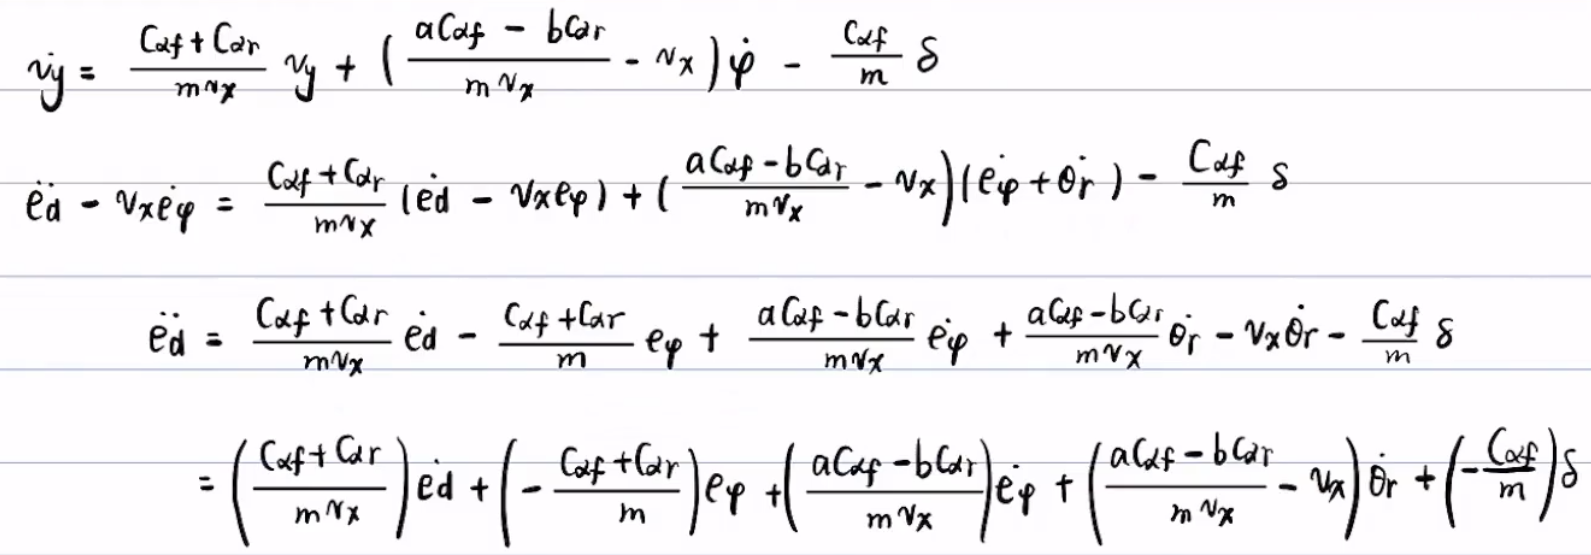 v̇y = (Cαf + Cαr)/(m vx) vy + ( (aCαf − bCαr)/(m vx) − vx ) φ̇ − Cαf/m δ
ëd − vx ėφ = (Cαf + Cαr)/(m vx) (ėd − vx eφ) + ( (aCαf − bCαr)/(m vx) − vx ) (ėφ + θ̇r) − Cαf/m δ
ëd = (Cαf + Cαr)/(m vx) ėd − (Cαf + Cαr)/m eφ + (aCαf − bCαr)/(m vx) ėφ + (aCαf − bCαr)/(m vx) θ̇r − vx θ̇r − Cαf/m δ
= ( (Cαf + Cαr)/(m vx) ) ėd + ( − (Cαf + Cαr)/m ) eφ + ( (aCαf − bCαr)/(m vx) ) ėφ + ( (aCαf − bCαr)/(m vx) − vx ) θ̇r + ( − Cαf/m ) δ